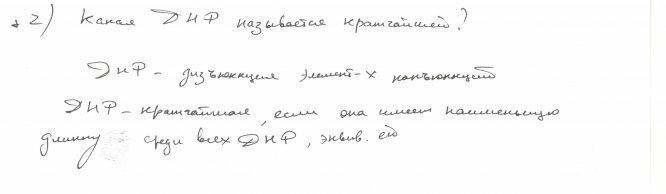 2) Какая ДНФ называется кратчайшей?
ДНФ - дизъюнкция элемент-х конъюнкций
ДНФ - кратчайшая, если она имеет наименьшую
длину среди всех ДНФ, эквив. ей